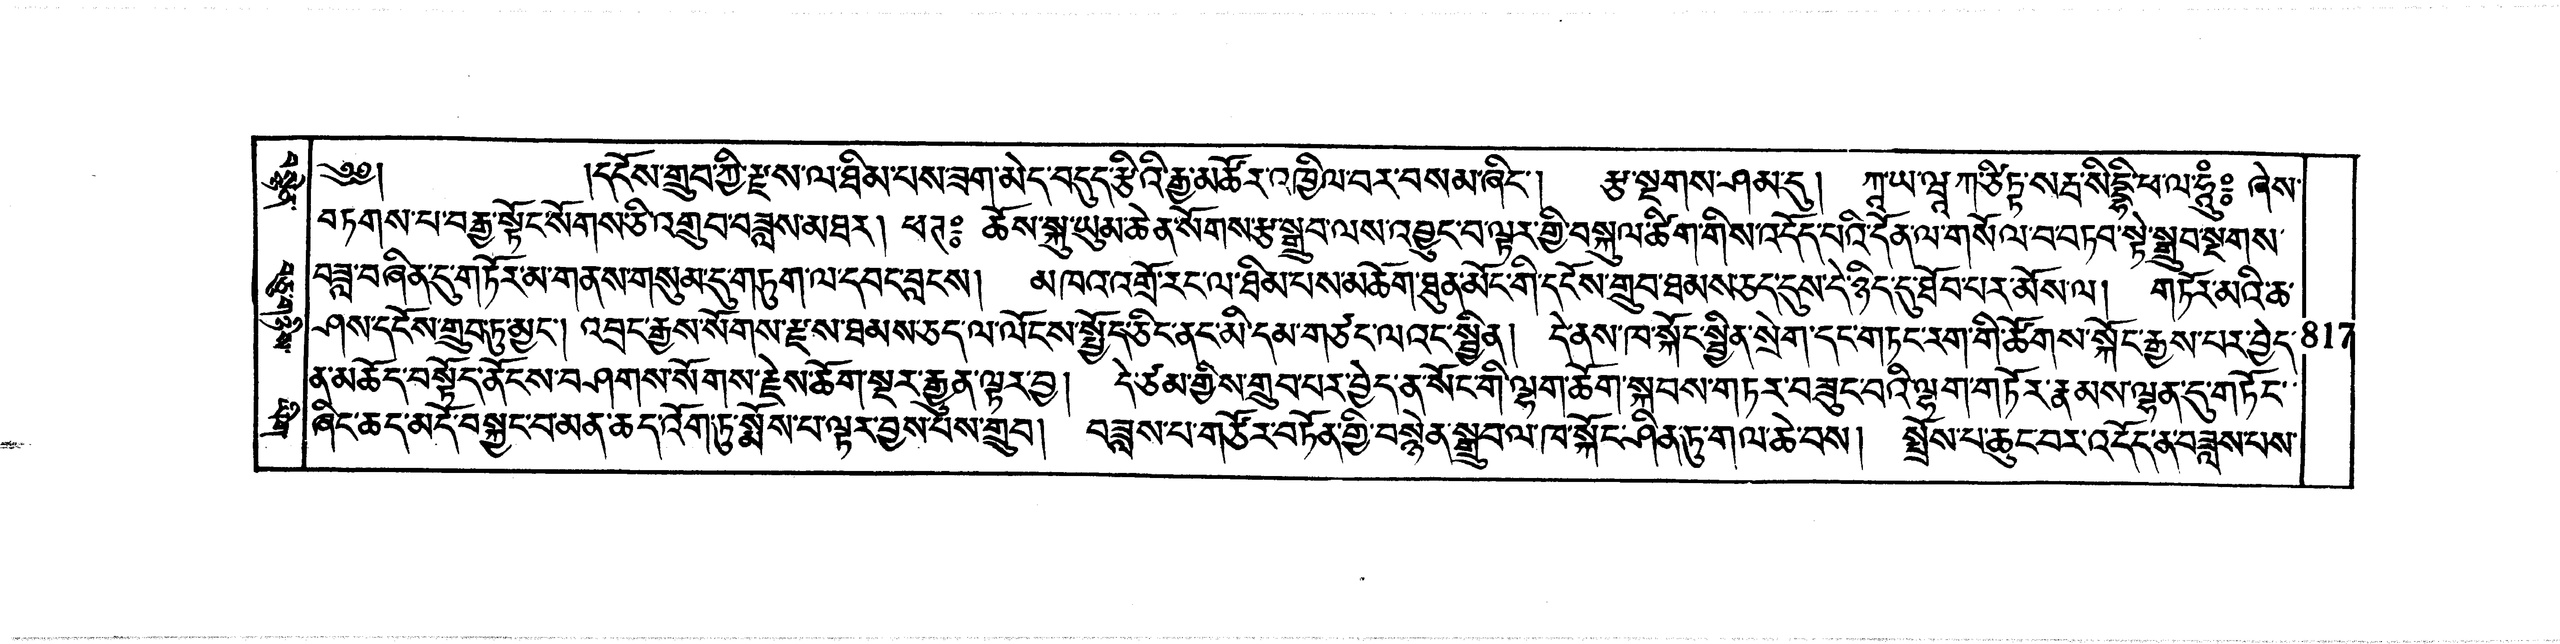 ༄༅། །དངོས་གྲུབ་ཀྱི་རྫས་ལ་ཐིམ་པས་ཟག་མེད་བདུད་རྩིའི་རྒྱ་མཚོར་འཁྱིལ་བར་བསམ་ཞིང་། རྩ་སྔགས་ཤམ་དུ། ཀཱ་ཡ་ཝཱཀ་ཙིཏྟ་སརྦ་སིདྡྷི་ཕ་ལ་ཧཱུྃ༔ ཞེས་
བཏགས་པ་བརྒྱ་སྟོང་སོགས་ཅི་འགྲུབ་བཟླས་མཐར། ཕཊ༔ ཆོས་སྐུ་ཡུམ་ཆེན་སོགས་རྩ་སྒྲུབ་ལས་འབྱུང་བ་ལྟར་གྱི་བསྐུལ་ཚིག་གིས་འདོད་པའི་དོན་ལ་གསོལ་བ་བཏབ་སྟེ་སྒྲུབ་སྔགས་
བཟླ་བཞིན་དུ་གཏོར་མ་གནས་གསུམ་དུ་གཏུག་ལ་དབང་བླངས། མཁའ་འགྲོ་རང་ལ་ཐིམ་པས་མཆོག་ཐུན་མོང་གི་དངོས་གྲུབ་ཐམས་ཅད་དུས་དེ་ཉིད་དུ་ཐོབ་པར་མོས་ལ། གཏོར་མའི་ཆ་
ཤས་དངོས་གྲུབ་ཏུ་མྱང་། འབྲང་རྒྱས་སོགས་རྫས་ཐམས་ཅད་ལ་ལོངས་སྤྱོད་ཅིང་ནང་མི་དམ་གཙང་ལའང་སྦྱིན། དེ་ནས་ཁ་སྐོང་སྦྱིན་སྲེག་དང་གཏང་རག་གི་ཚོགས་སྐོང་རྒྱས་པར་བྱེད་
ན་མཆོད་བསྟོད་ནོངས་བཤགས་སོགས་རྗེས་ཆོག་སྤར་རྒྱུན་ལྟར་བྱ། དེ་ཙམ་གྱིས་གྲུབ་པར་བྱེད་ན་སོང་གི་ལྷག་ཆོག་སྐབས་གཏར་བཟུང་བའི་ལྷག་གཏོར་རྣམས་ལྷན་དུ་གཏོང་
ཞིང་ཆད་མདོ་བསྐྱང་བ་མན་ཆད་འོག་ཏུ་སྨོས་པ་ལྟར་བྱས་པས་གྲུབ། བཟླས་པ་གཙོར་བཏོན་གྱི་བསྙེན་སྒྲུབ་ལ་ཁ་སྐོང་ཤིན་ཏུ་གལ་ཆེ་བས། སྤྲོས་པ་ཆུང་བར་འདོད་ན་བཟླས་པས་
817